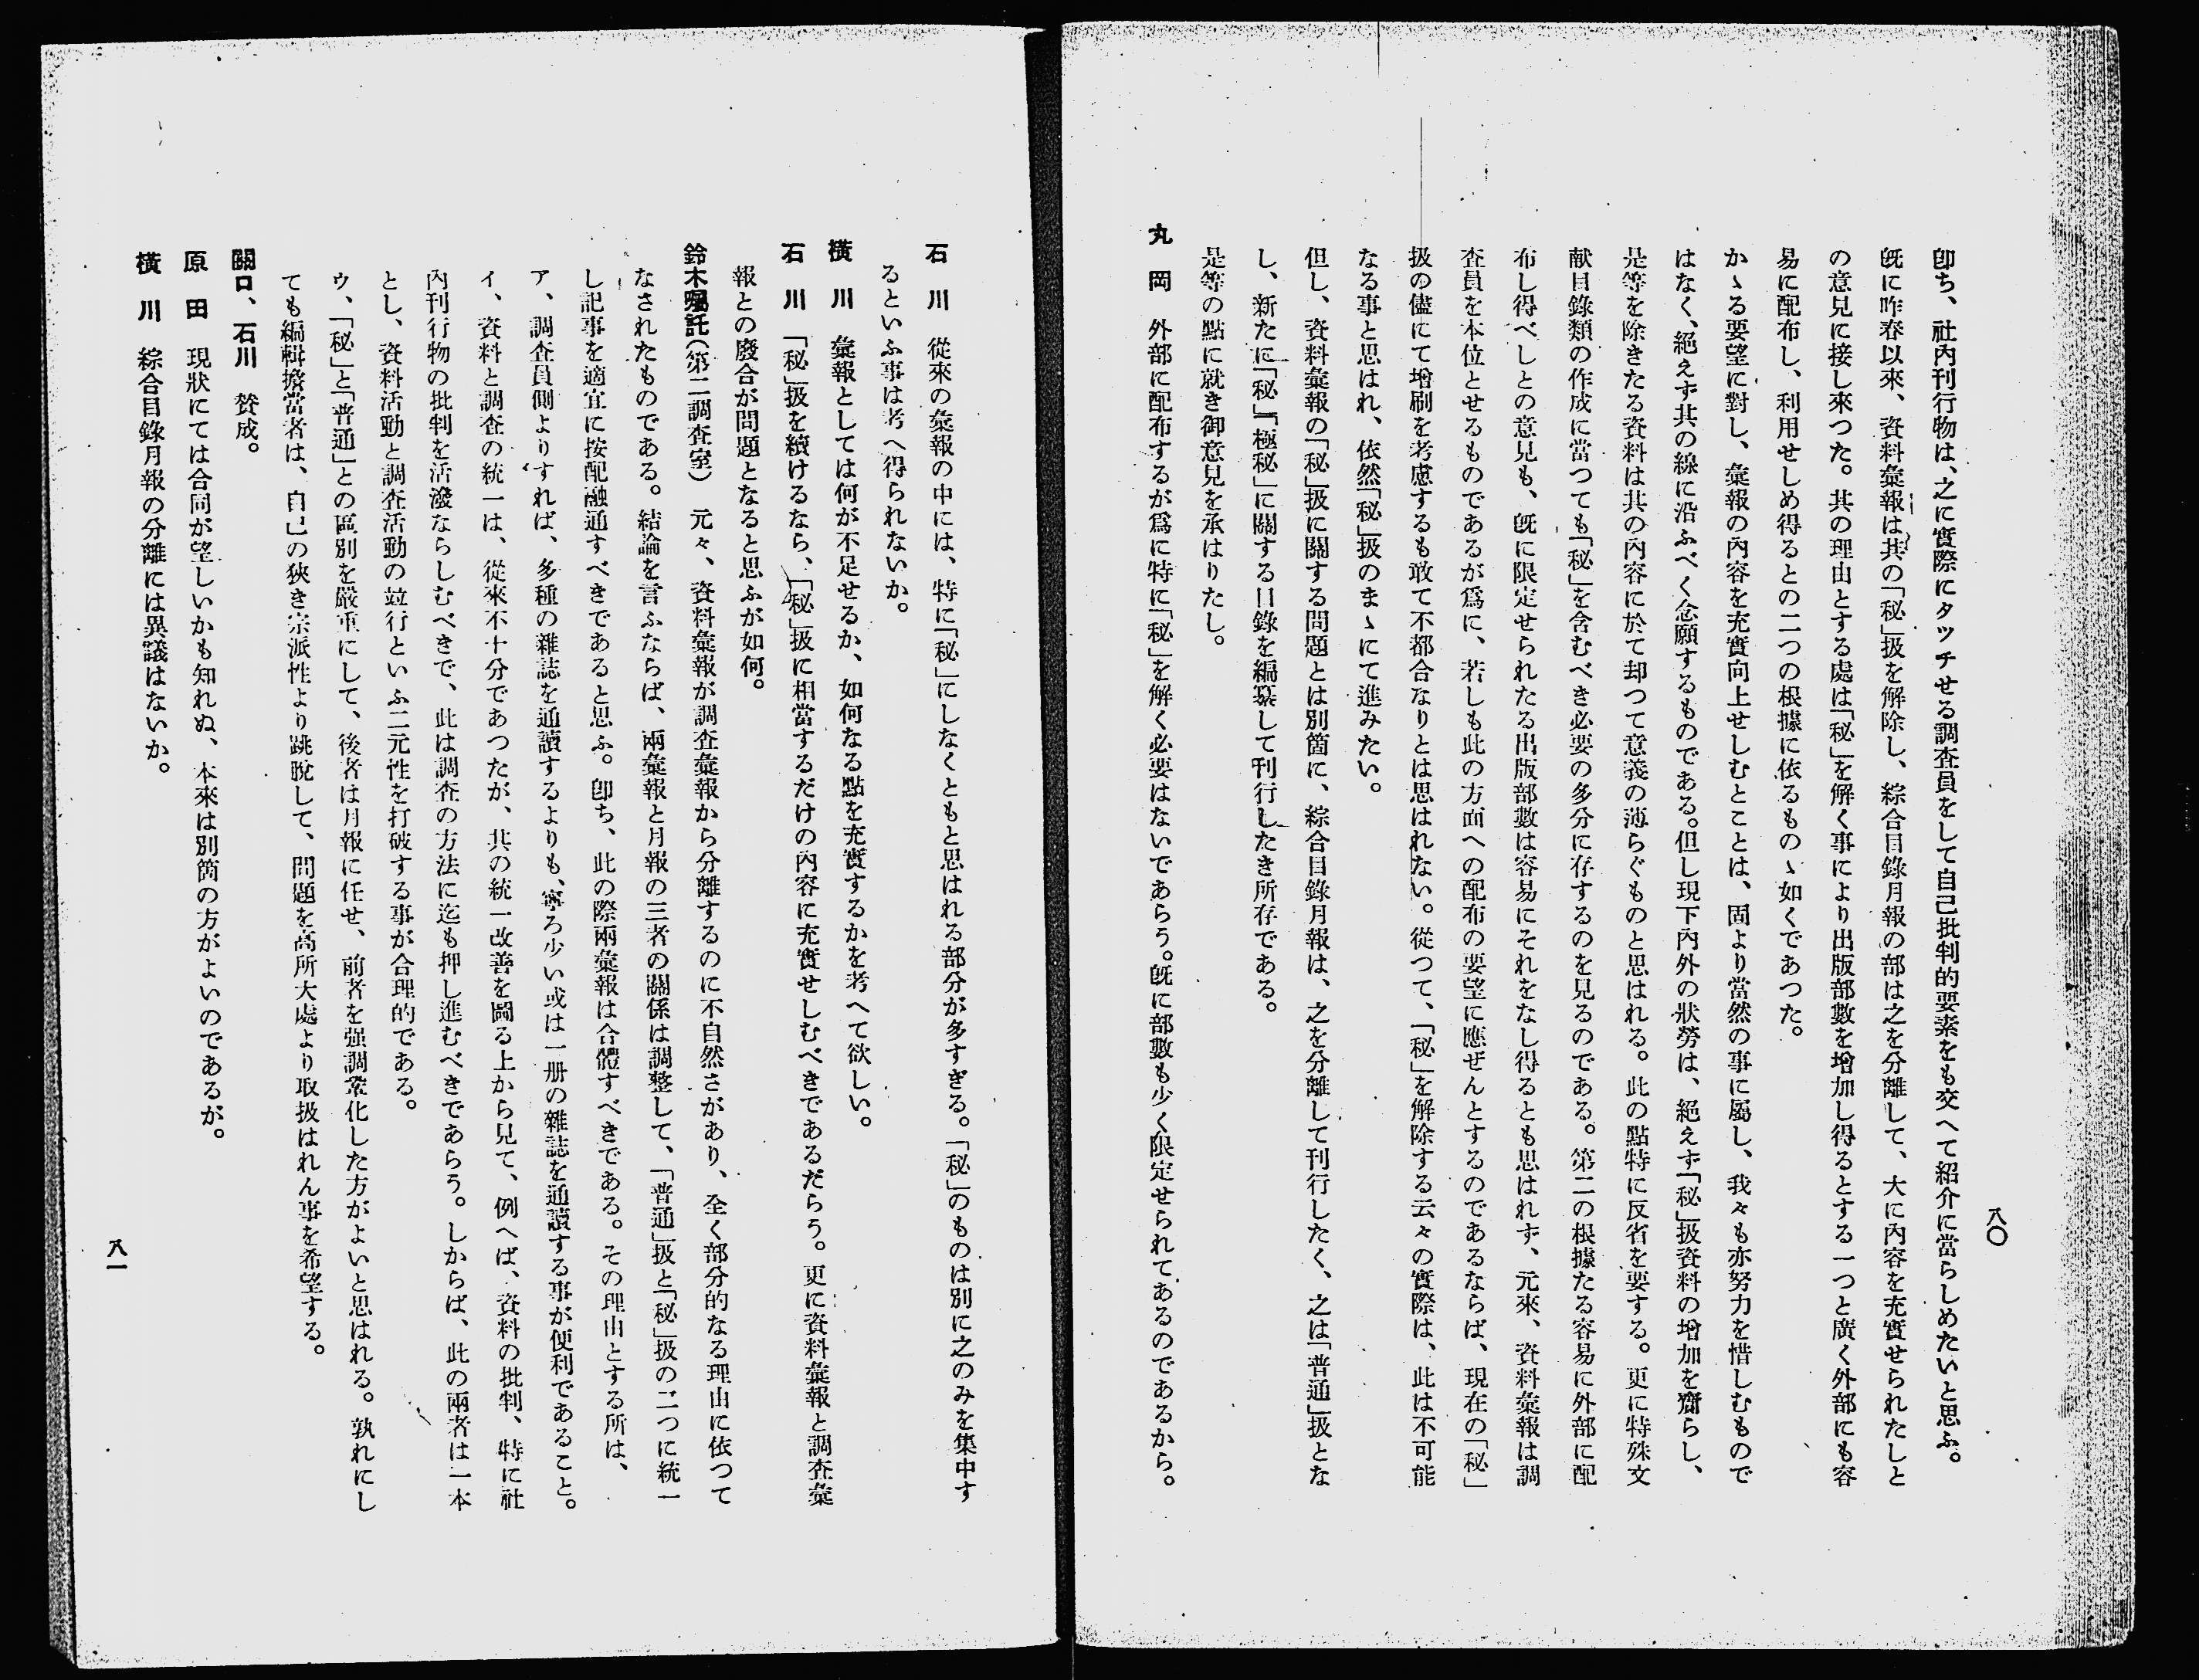 八〇
卽ち、社內刊行物は、之に實際にタッチせる調査員をして自己批判的要素をも交へて紹介に當らしめたいと思ふ。
旣に昨春以來、資料彙報は其の「秘」扱を解除し、綜合目錄月報の部は之を分離して、大に內容を充實せられたしと
の意見に接し來つた。其の理由とする處は「秘」を解く事により出版部數を增加し得るとする一つと廣く外部にも容
易に配布し、利用せしめ得るとの二つの根據に依るものゝ如くであつた。
かゝる要望に對し、彙報の內容を充實向上せしむとことは、固より當然の事に屬し、我々も亦努力を惜しむもので
はなく、絕えず其の線に沿ふべく念願するものである。但し現下內外の狀勞は、絕えず「秘」扱資料の增加を齎らし、
是等を除きたる資料は其の內容に於て却つて意義の薄らぐものと思はれる。此の點特に反省を要する。更に特殊文
献目錄類の作成に當つても「秘」を含むべき必要の多分に存するのを見るのである。第二の根據たる容易に外部に配
布し得べしとの意見も、旣に限定せられたる出版部數は容易にそれをなし得るとも思はれず、元來、資料彙報は調
査員を本位とせるものであるが爲に、若しも此の方面への配布の要望に應ぜんとするのであるならば、現在の「秘」
扱の儘にて增刷を考慮するも敢て不都合なりとは思はれない。從つて、「秘」を解除する云々の實際は、此は不可能
なる事と思はれ、依然「秘」扱のまゝにて進みたい。
但し、資料彙報の「秘」扱に關する問題とは別箇に、綜合目錄月報は、之を分離して刊行したく、之は「普通」扱とな
し、新たに「秘」『極秘」に關する目錄を編纂して刊行したき所存である。
是等の點に就き御意見を承はりたし。
丸岡 外部に配布するが爲に特に「秘」を解く必要はないであらう。旣に部數も少く限定せられてあるのであるから。
石川 從來の彙報の中には、特に「秘」にしなくともと思はれる部分が多すぎる。「秘」のものは別に之のみを集中す
るといふ事は考へ得られないか。
橫川 彙報としては何が不足せるか、如何なる點を充實するかを考へて欲しい。
石川 「秘」扱を續けるなら、「秘」扱に相當するだけの內容に充實せしむべきであるだらう。更に資料彙報と調査彙
報との廢合が問題となると思ふが如何。
鈴木囑託(第二調査室) 元々、資料彙報が調査彙報から分離するのに不自然さがあり、全く部分的なる理由に依つて
なされたものである。結論を言ふならば、兩彙報と月報の三者の關係は調整して、「普通」扱と「秘」扱の二つに統一
し記事を適宜に按配融通すべきであると思ふ。卽ち、此の際兩彙報は合體すべきである。その理由とする所は、
ア、調査員側よりすれば、多種の雜誌を通讀するよりも、寧ろ少い或は一册の雜誌を通讀する事が便利であること。
イ、資料と調査の統一は、從來不十分であつたが、共の統一改善を圖る上から見て、例へば、資料の批判、特に社
內刊行物の批判を活潑ならしむべきで、此は調査の方法に迄も押し進むべきであらう。しからば、此の兩者は一本
とし、資料活動と調査活動の竝行といふ二元性を打破する事が合理的である。
ゥ、「秘」と「普通」との區別を嚴重にして、後者は月報に任せ、前者を强調叢化した方がよいと思はれる。孰れにし
ても編輯擔當者は、自己の狹き宗派性より跳脫して、問題を高所大處より取扱はれん事を希望する。
關口、石川 贊成。
原田 現狀にては合同が望しいかも知れぬ、本來は別箇の方がよいのであるが。
橫川 綜合目錄月報の分離には異議はないか。
八一